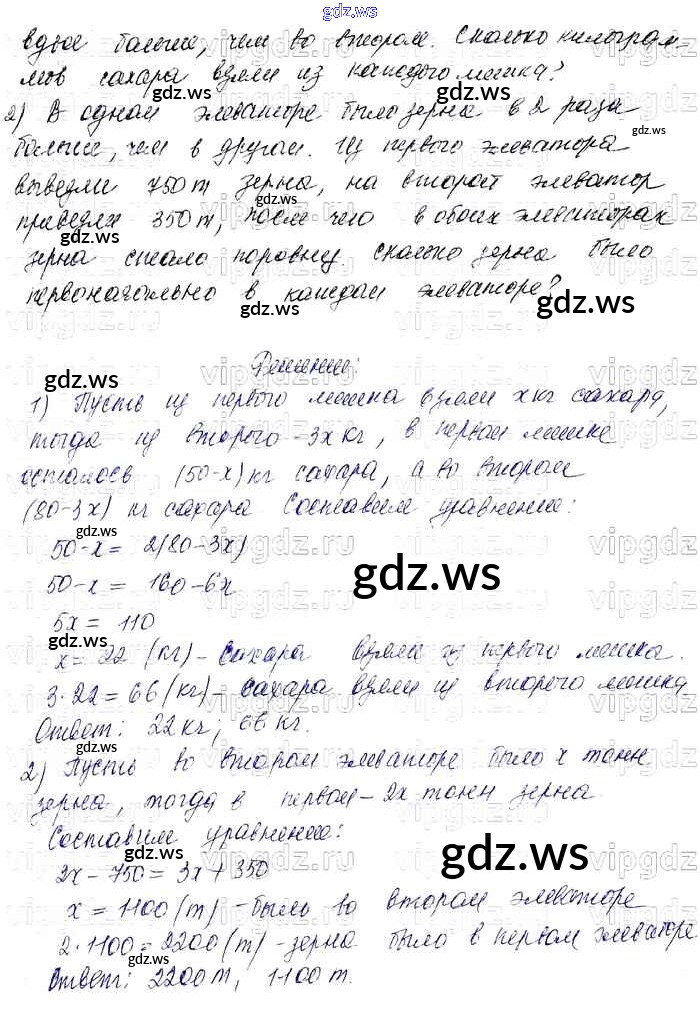 gdz.ws
вдвое больше, чем во втором. Сколько килограм-
мов сахара взяли из каждого мешка?
2) В одном элеваторе было зерна в 2 раза
больше, чем в другом. Из первого элеватора
вывезли 750 т зерна, на второй элеватор
привезли 350 т, после чего в обоих элеваторах
зерна стало поровну. Сколько зерна было
первоначально в каждом элеваторе?
Решение:
1) Пусть из первого мешка взяли x кг сахара,
тогда из второго - 3x кг, в первом мешке
осталось (50-x) кг сахара, а во втором
(80-3x) кг сахара Составим уравнение:
50-x = 2(80-3x)
50-x = 160-6x
5x = 110
x = 22 (кг) - сахара взяли из первого мешка.
3·22 = 66 (кг) - сахара взяли из второго мешка
Ответ: 22 кг; 66 кг.
2) Пусть во втором элеваторе было x тонн
зерна, тогда в первом - 2x тонн зерна
Составим уравнение:
2x-750 = 3x+350
x = 1100 (т) - было во втором элеваторе
2·1100 = 2200 (т) - зерна было в первом элеваторе
Ответ: 2200 т, 1100 т.